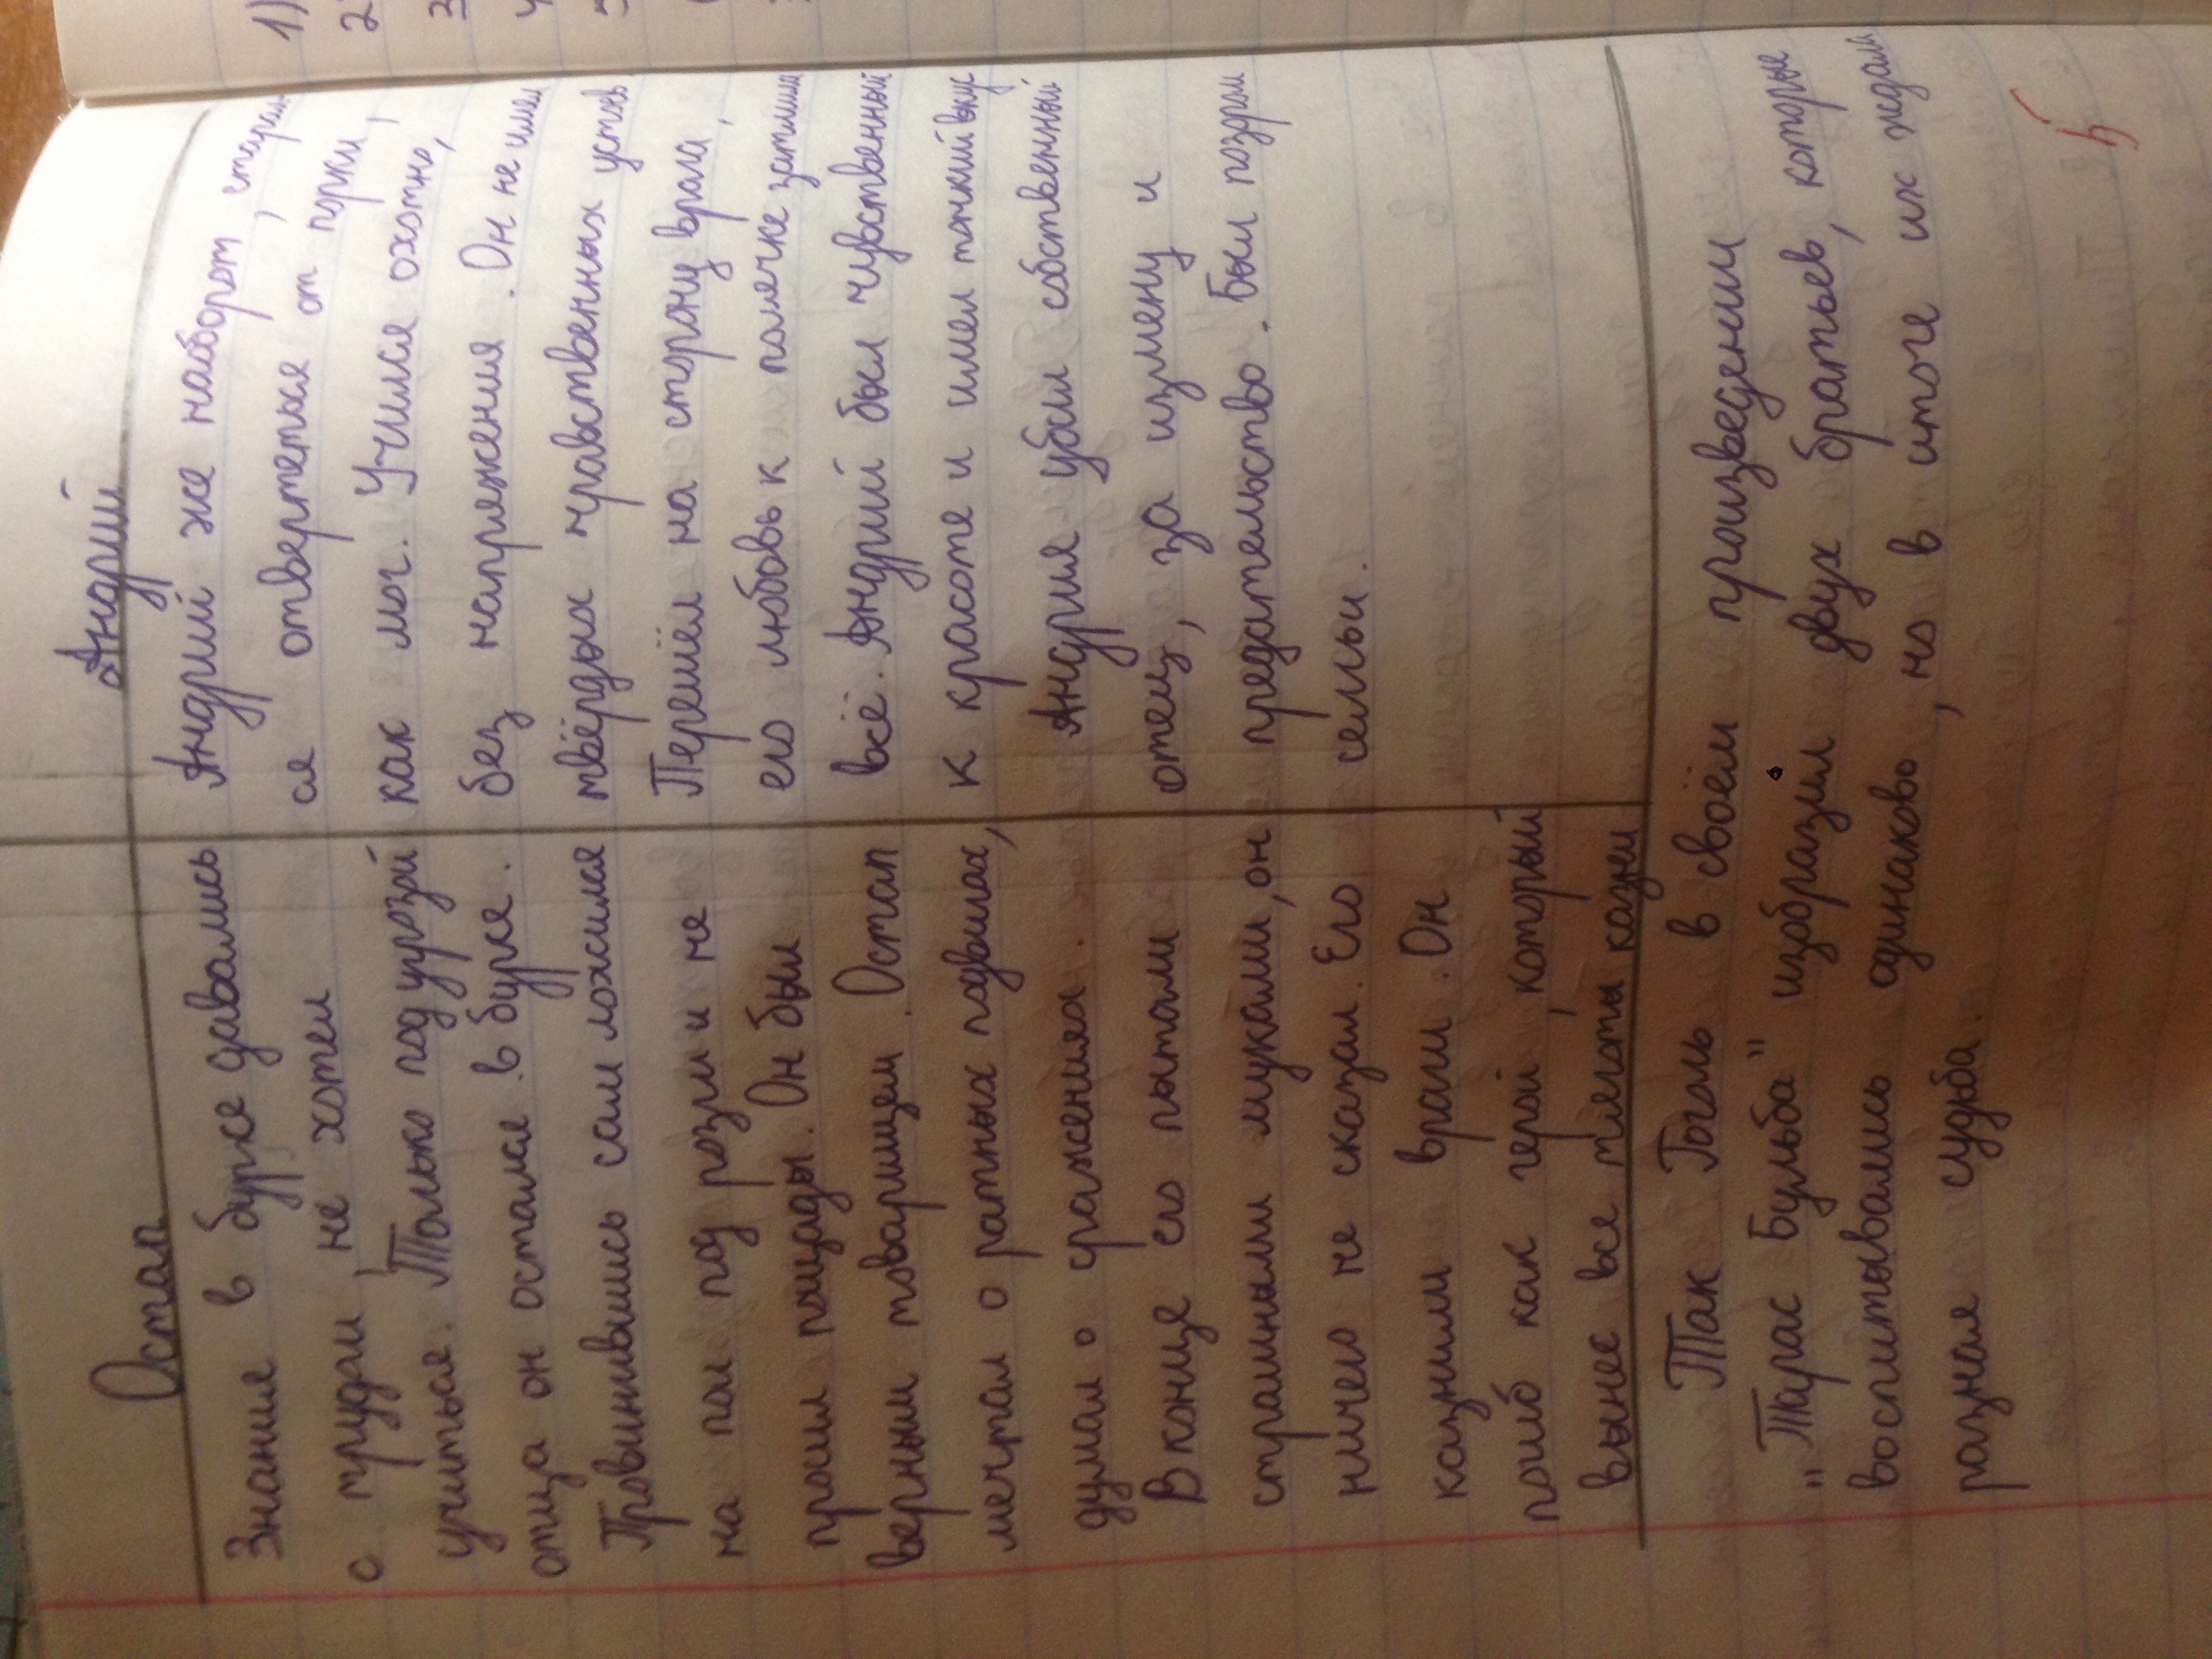 Остап
Знания в бурсе давались
с трудом, не хотел
учиться. Только под угрозой
отца он остался в бурсе.
Провинившись сам ложился
на пол под розги и не
просил пощады. Он был
верным товарищем. Остап
мечтал о ратных подвигах,
думал о сражениях.
В конце его пытали
страшными муками, он
ничего не сказал. Его
казнили враги. Он
погиб как герой, который
вынес все тяготы казни
Андрий
Андрий же наборот, старал
ся отвертется от порки,
как мог. Учился охотно,
без напряжения. Он не имел
твёрдых нравственных устоев
Перешёл на сторону врага,
его любовь к полячке затмила
всё. Андрий был чувственный
к красоте и имел тонкий вкус
Андрия убил собственный
отец, за измену и
предательство. Был позором
семьи.
Так Гоголь в своём произведении
"Тарас Бульба" изобразил двух братьев, которые
воспитывались одинаково, но в итоге их ждала
разная судьба.
5
1)
2
3